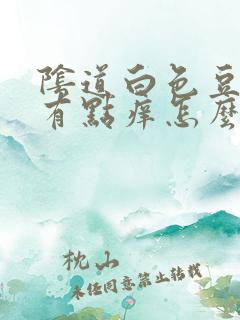 陰道白色豆
有點痒怎麼
枕山
未任同意禁止转载